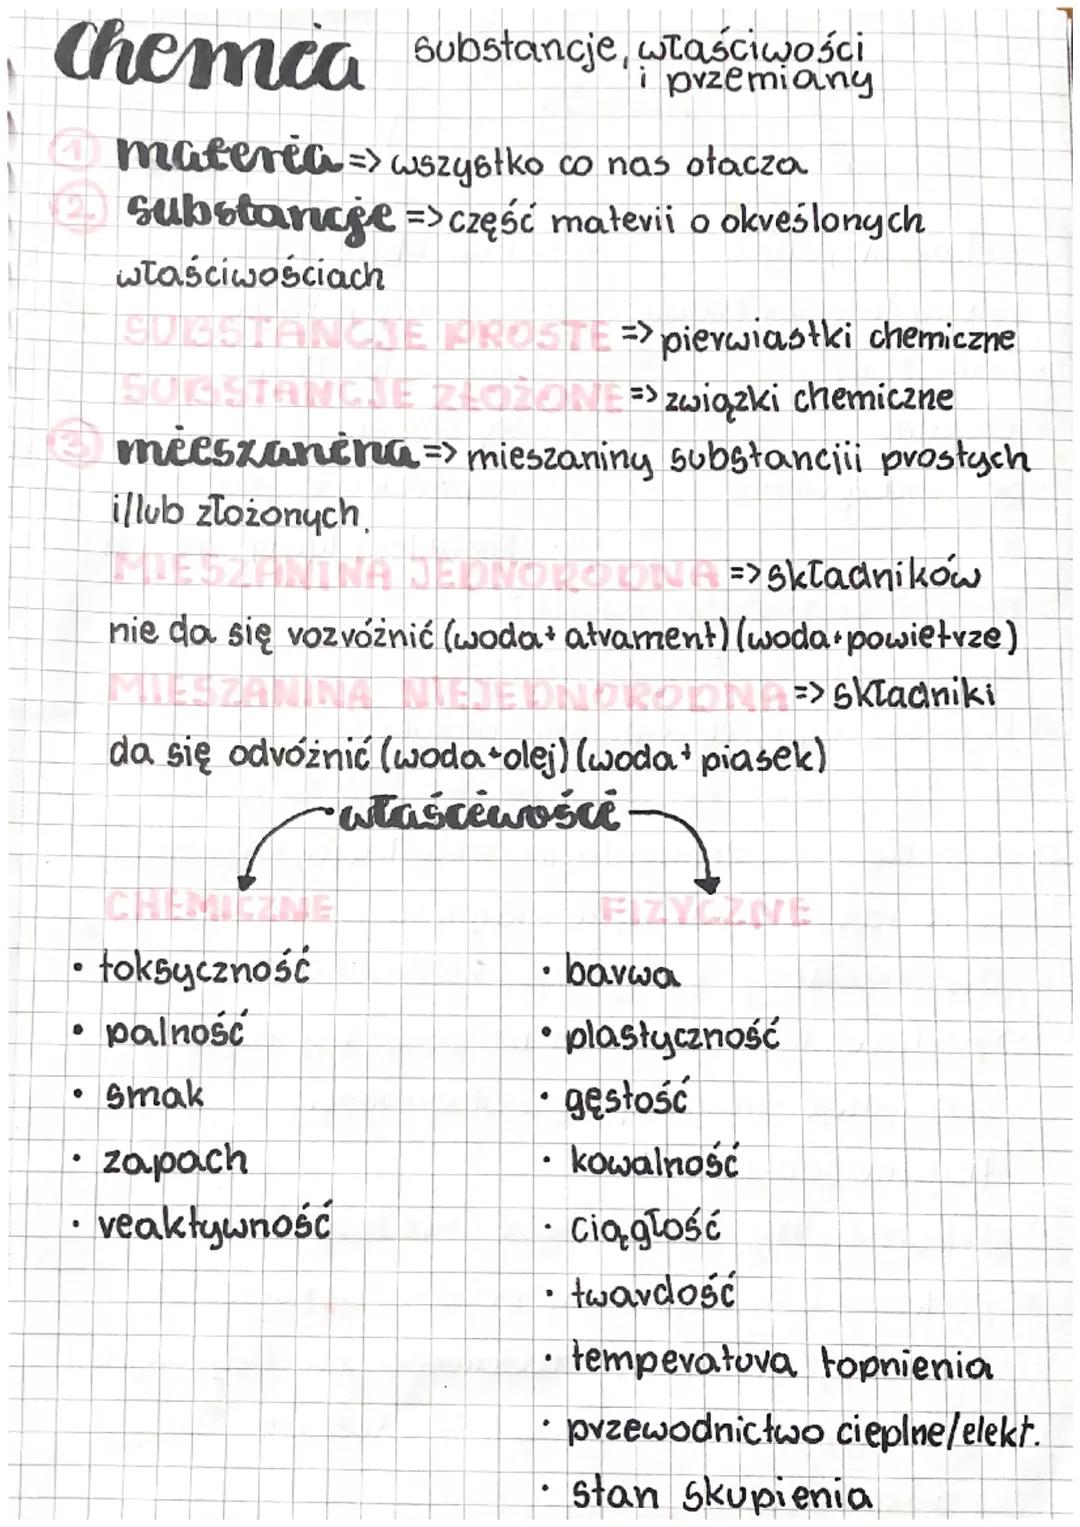 chemia substancje, właściwości
i przemiany
1 materia => wszystko co nas otacza
2. substancje => część materii o określonych
właściwościach
SUBSTANCJE PROSTE => pierwiastki chemiczne
SUBSTANCJE ZŁOŻONE => związki chemiczne
3. mieszanina => mieszaniny substancjii prostych
i/lub złożonych.
MIESZANINA JEDNORODNA => składników
nie da się rozróżnić (woda+ atrament) (woda+powietrze)
MIESZANINA NIEJEDNORODNA => składniki
da się odróżnić (woda+olej) (woda+ piasek)
właściwości
CHEMICZNE FIZYCZNE
• toksyczność • barwa
• palność • plastyczność
• smak • gęstość
• zapach • kowalność
• reaktywność • ciągłość
• twardość
• temperatura topnienia
• przewodnictwo cieplne/elekt.
• stan skupienia